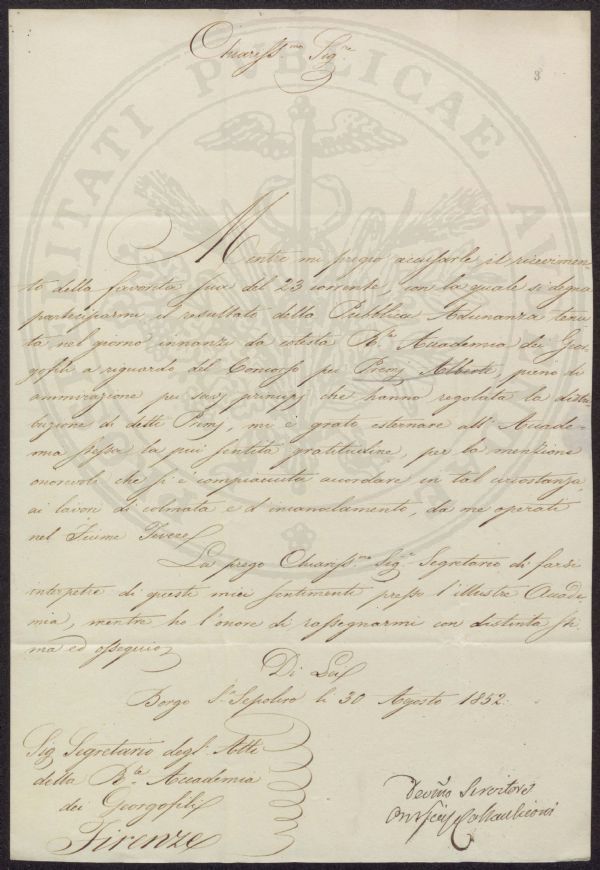 Chiariss.mo Sig.re
3
Mentre mi pregio accusarle il ricevimen-
to della favorita sua del 23 corrente, con la quale si degna
parteciparmi il resultato della Pubblica Adunanza tenu
ta nel giorno innanzi da cotesta R.le Accademia dei Geor
gofili a riguardo del Concorso pei Premj Alberti, pieno di
ammirazione pei savj principj che hanno regolata la distri
buzione di detti Premj, mi è grato esternare all' Accade
mia stessa la più sentita gratitudine, per la menzione
onorevole che si è compiaciuta accordare in tal circostanza,
ai lavori di colmata e d'incanalamento, da me operati
nel Fiume Tevere
La prego Chiariss.mo Sig.r Segretario di farsi
interpetre di questi miei sentimenti presso l'illustre Accade
mia, mentre ho l'onore di rassegnarmi con distinta sti
ma ed ossequio
Di Lei
Borgo S. Sepolcro li 30 Agosto 1852.
Sig. Segretario degl. Atti
della R.le Accademia
dei Georgofili
Firenze
Devmo Servitore
Collacchioni
PROSPERITATI PUBLICAE AUGENDAE